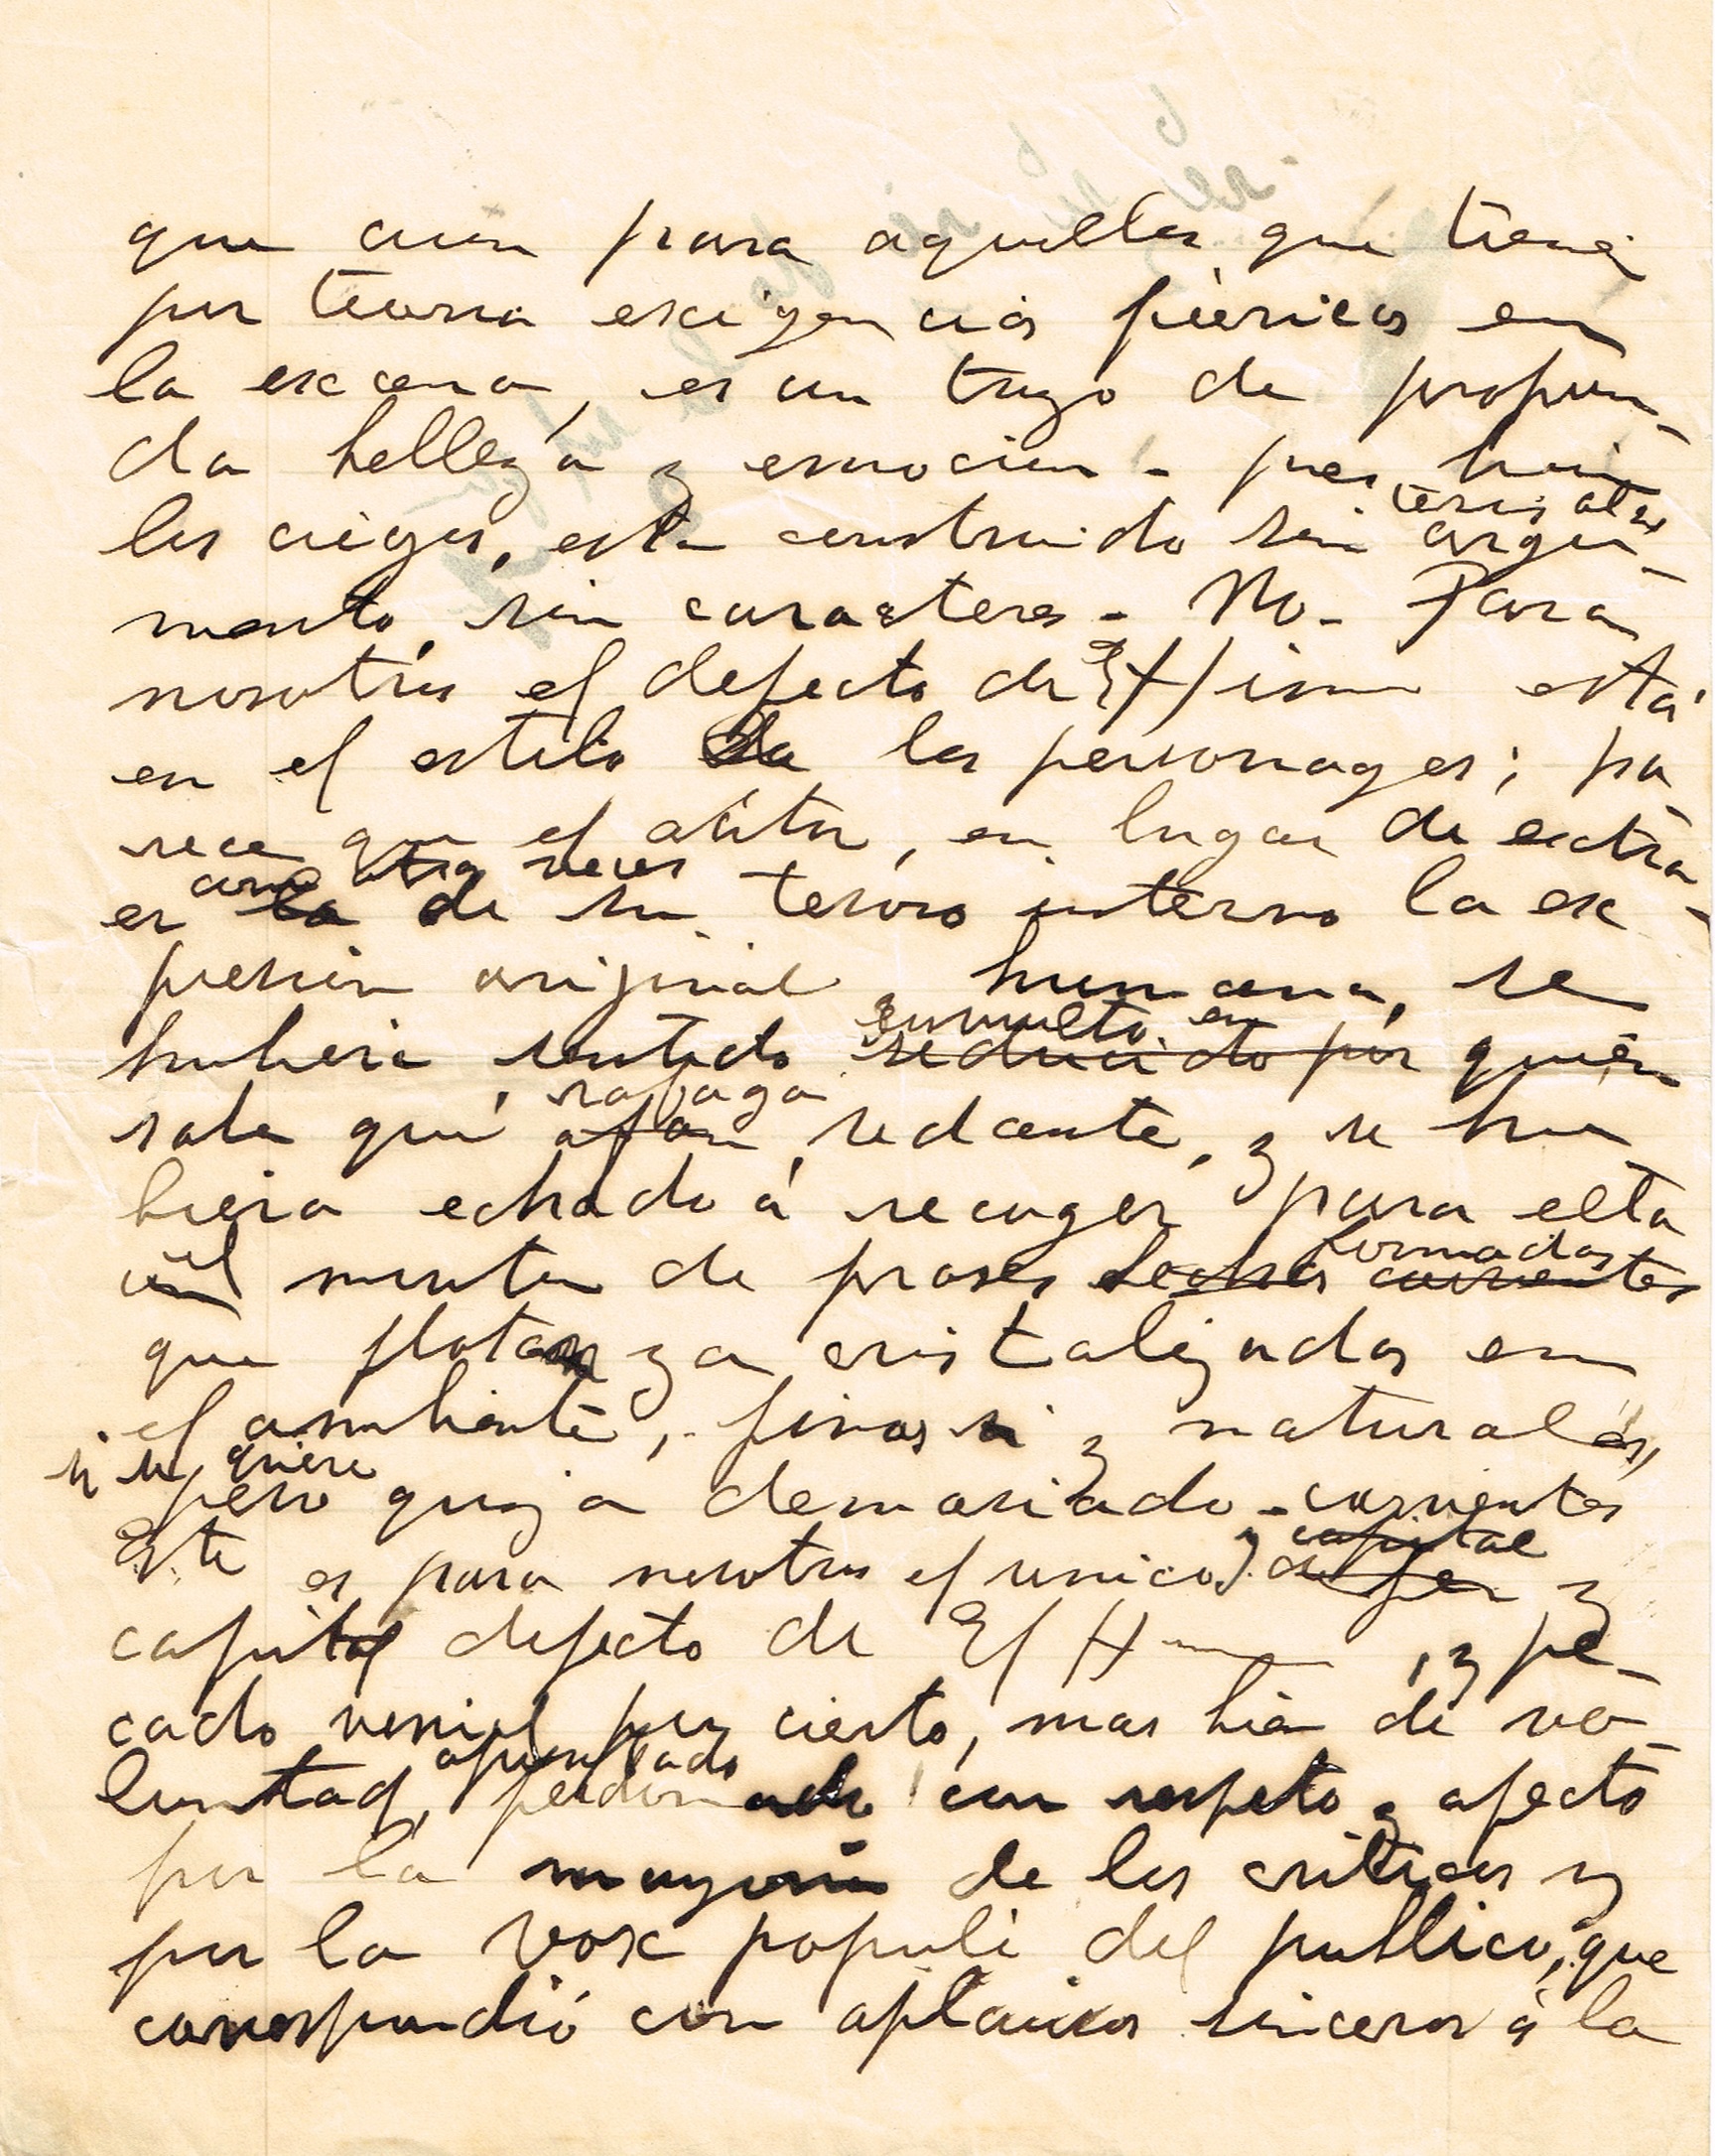 que aun para aquellos que tienen
por teoria exigencias féericas en
la escena, es un trozo de profun-
da belleza y emocion - pues
los ciegos, está construido sin argu-
mento, sin caracteres - No - Para
nosotros el defecto de El H está
en el estilo de los personages; pa
rece que el autor, en lugar de extra-
como otras veces
er la de su tesoro interno la ex
presion original, humana, se
envuelto en
hubiera sentido seducido por quien
rafaga
sabe qué afan sedante, y se hu
biera echado á recoger para esta
formadas
un de frases hechas corrientes
que flotan ya cristalizadas en
el ambiente, finas si y naturales,
si se quiere
pero quizá demasiado corrientes
y capital
Este es para nosotros el unico y
capital defecto de El H , y pe-
cado venial por cierto, mas bien de vo-
luntad, perdonado con respeto y afecto
por la mayoria de los criticos y
por la vox populi del publico, que
correspondió con aplausos sinceros á la